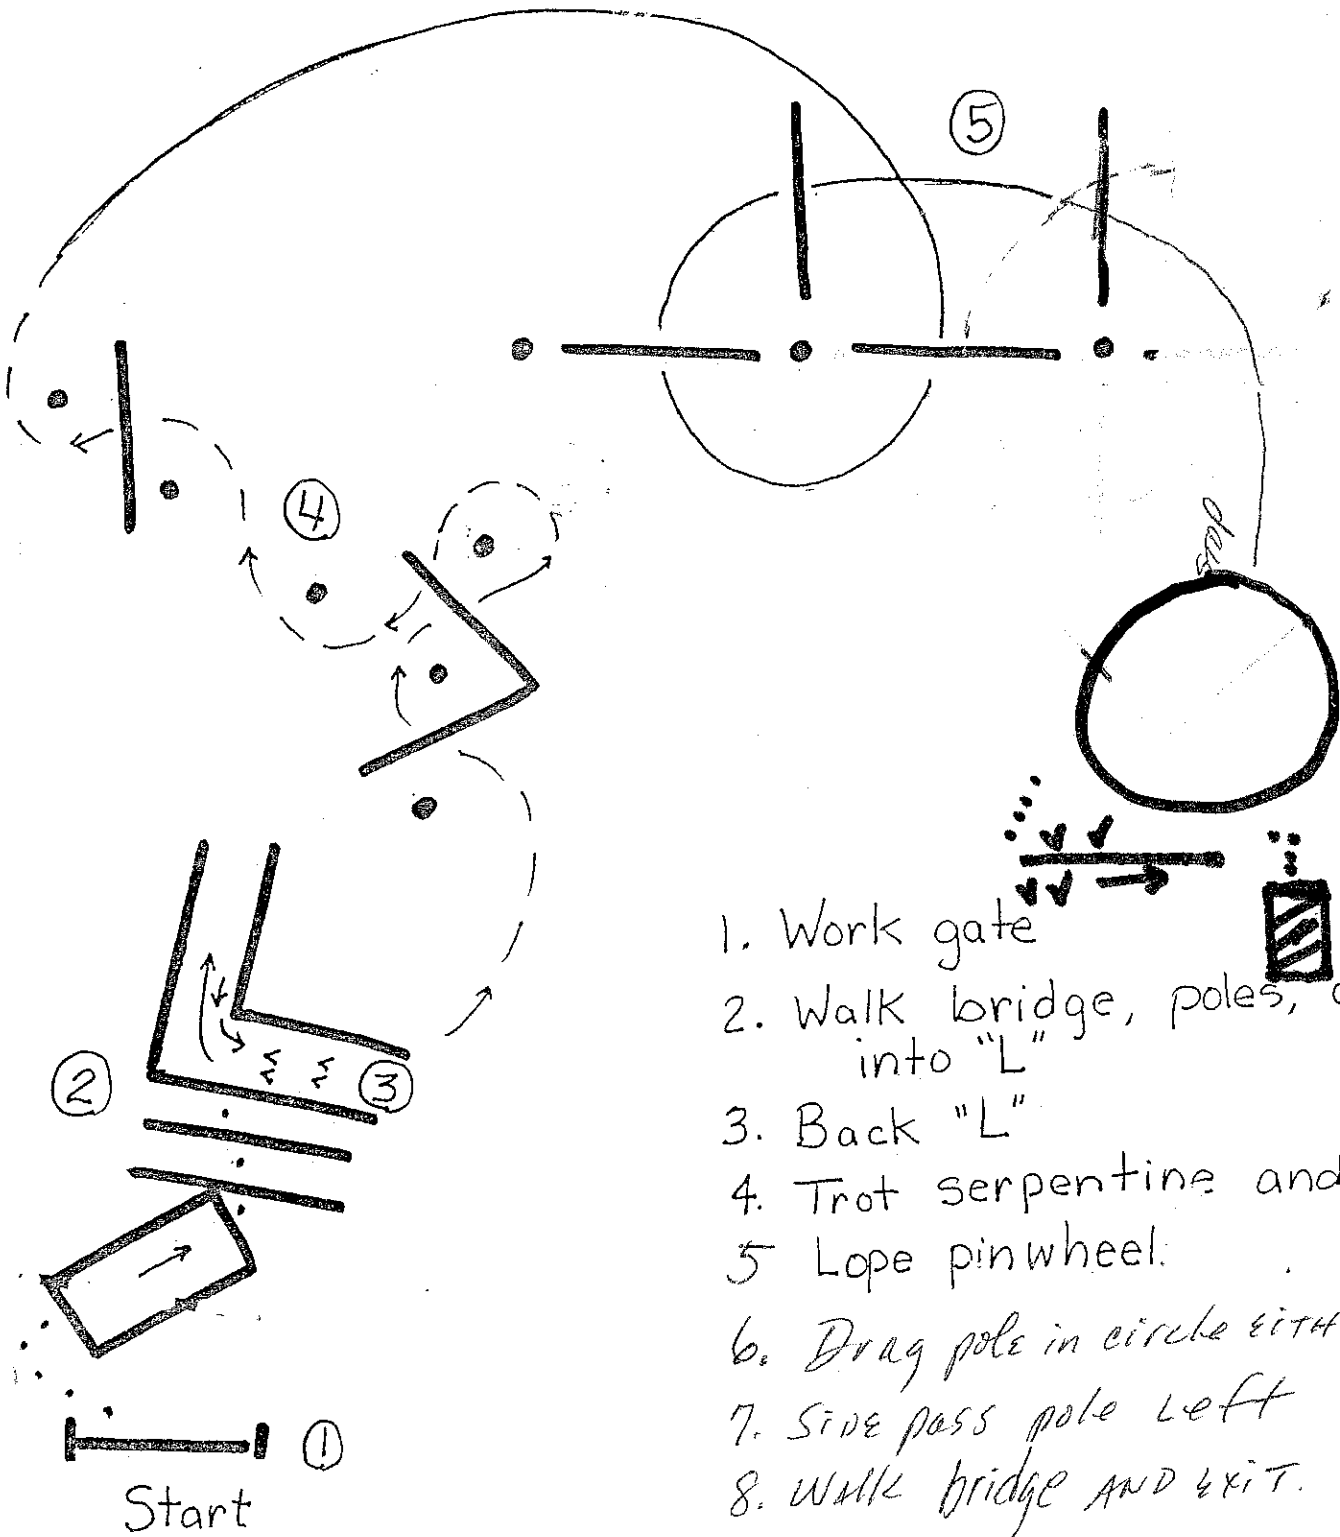 5
4
1. Work gate
2. Walk bridge, poles,
into "L"
2
3
3. Back "L"
4. Trot serpentine and
5 Lope pinwheel.
6. Drag pole in circle
7. SIDE pass pole Left
1
8. Walk bridge AND EXIT.
Start